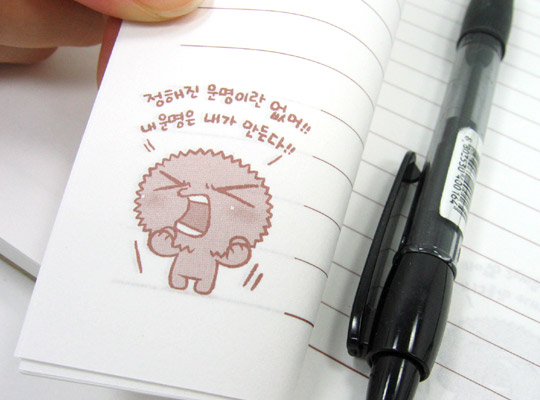 정해진 운명이란 없어!!
내운명은 내가 만든다!!